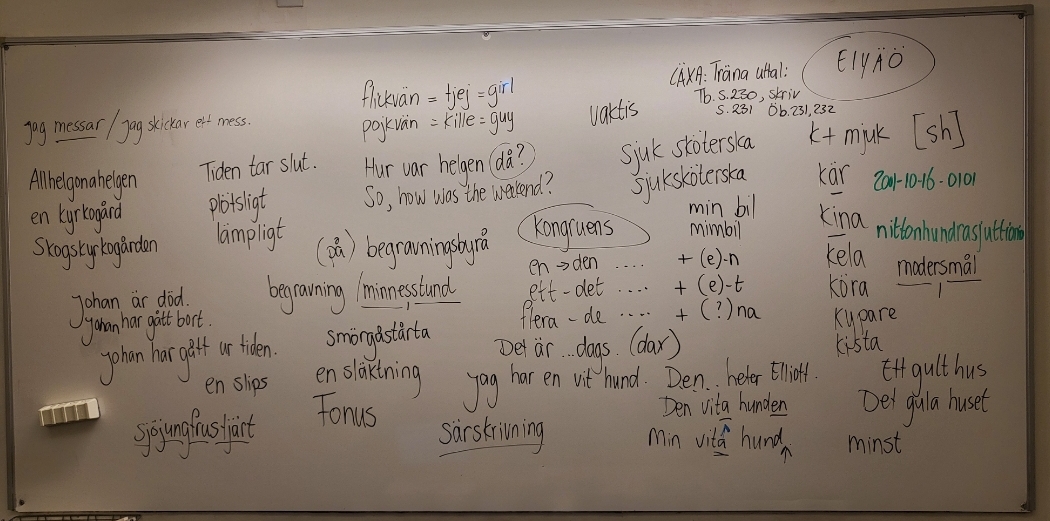 jag messar / jag skickar ett mess.
Allhelgonahelgen
en kyrkogård
Skogskyrkogården
Tiden tar slut.
plötsligt
lämpligt
Johan är död.
Johan har gått bort.
Johan har gått ur tiden.
en slips
sjöjungfrustjärt
flickvän = tjej = girl
pojkvän = kille = guy
Hur var helgen då?
So, how was the weekend?
(på) begravningsbyrå
begravning / minnesstund
smörgåstårta
en släktning
Fonus
vaktis
LÄXA: Träna uttal:
Tb. s. 230, skriv
s. 231 Öb. 231, 232
EIYÄÖ
sjuk sköterska
sjuksköterska
min bil
mimbil
kongruens
en → den .... + (e)-n
ett - det .... + (e)-t
flera - de .... + (?) na
Det är ... dags. (dax)
jag har en vit hund. Den.. heter Elliott.
Den vita hunden
Min vita hund
särskrivning
k + mjuk [sh]
kär
kina
kela
köra
kypare
kista
2001-10-16-0101
modersmål
Ett gult hus
Det gula huset
minst